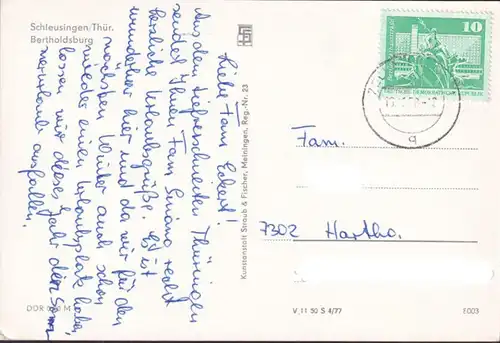 Schleusingen/Thür.
Bertholdsburg
Liebe Fam. Eckert!
Aus dem tiefverschneiten Thüringen
sendet Ihnen Fam. recht
herzliche Urlaubsgrüße. Es ist
wunderbar hier und da wir für den
nächsten Winter auch schon
wieder einen Urlaubsplatz haben,
lassen wir dieses Jahr den Som
merurlaub ausfallen.
DDR M
Kunstanstalt Straub & Fischer, Meiningen, Reg.-Nr. 23
V 11 50 S 4/77
8003
10
DEUTSCHE DEMOKRATISCHE REPUBLIK
Fam.
7302 Hartha.